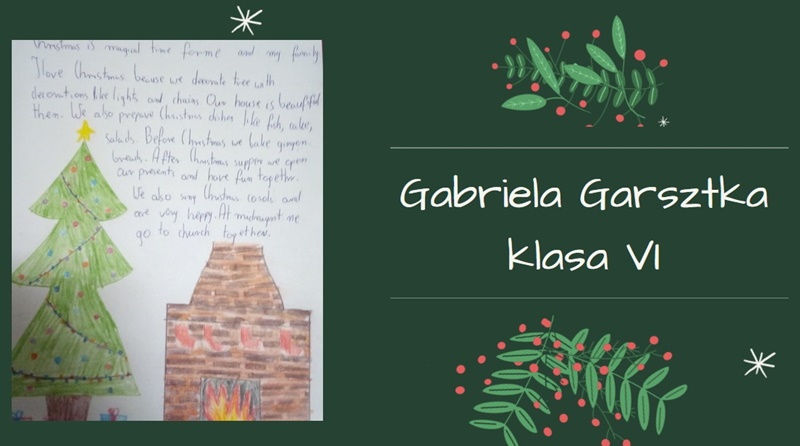 Christmas is magical time for me and my family
I love Christmas beause we decorate tree with
decorations like lights and chains. Our house is beautiful
then. We also prepare Christmas dishes like fish, cake,
salads. Before Christmas we bake gingen-
breads. After Christmas supper we open
our presents and have fun together.
We also sing Christmas carols and
are very happy. At midnignt we
go to church together.
Gabriela Garsztka
klasa VI